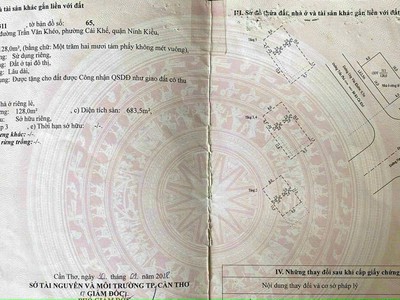 à tài sản khác gắn liền với đất
311 , tờ bản đồ số: 65,
đường Trần Văn Khéo, phường Cái Khế, quận Ninh Kiều,
128,0m², (bằng chữ: Một trăm hai mươi tám phẩy không mét vuông),
Sử dụng riêng,
Đất ở tại đô thị,
Lâu dài,
Được tặng cho đất được Công nhận QSDĐ như giao đất có thu
hà ở riêng lẻ,
128,0m², c) Diện tích sàn: 683,5m²,
Sở hữu riêng,
p 3 e) Thời hạn sở hữu: -/-.
rình khác: -/-.
rừng trồng: -/-.
Cần Thơ, ngày
SỞ TÀI NGUYÊN VÀ MÔI TRƯỜNG TP. CẦN THƠ
GIÁM ĐỐC
PHÓ GIÁM ĐỐC
III. Sơ đồ thửa đất, nhà ở và tài sản khác gắn liền với đất
IV. Những thay đổi sau khi cấp giấy chứng
Nội dung thay đổi và cơ sở pháp lý